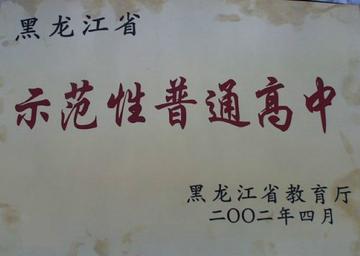 黑龙江省
示范性普通高中
黑龙江省教育厅
二〇〇二年四月